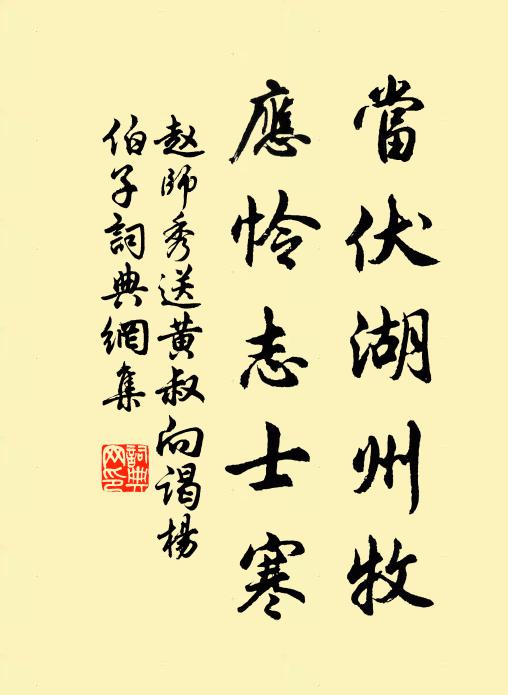 當伏湖州牧
應怜志士寒
赵師秀送黄叔向谒楊
伯子詞典網集
詞典网印